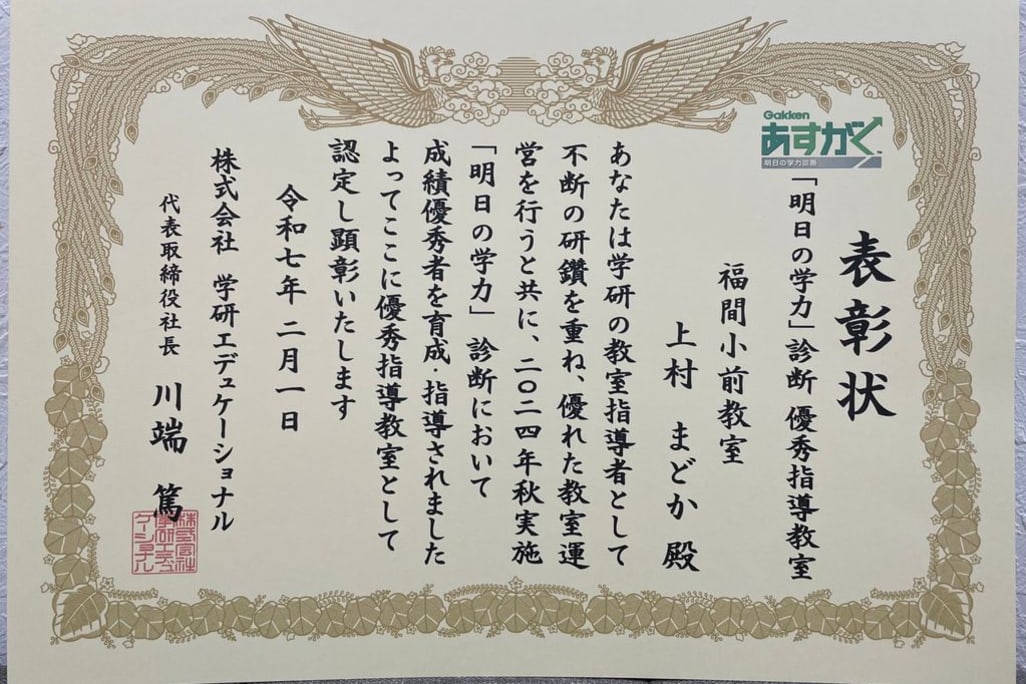 表彰状
Gakken
あすがく
明日の学力診断
「明日の学力」診断 優秀指導教室
福間小前教室
上村 まどか 殿
あなたは学研の教室指導者として
不断の研鑽を重ね、優れた教室運
営を行うと共に、二〇二四年秋実施
「明日の学力」診断において
成績優秀者を育成・指導されました
よってここに優秀指導教室として
認定し顕彰いたします
令和七年 二月一日
株式会社 学研エデュケーショナル
代表取締役社長 川端 篤
株式会社
学研エデュ
ケーショナル